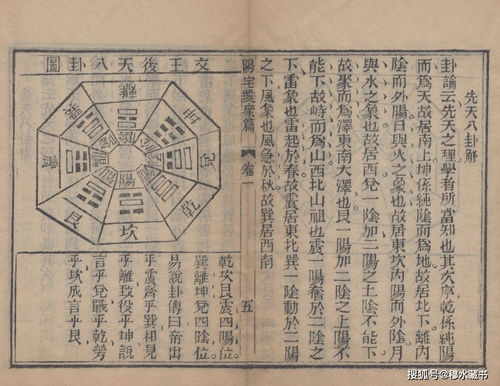 先天八卦解
卦論云先天之理學者所當知也其次序乾係純陽
而爲天故居南上坤係純陰而爲地故居北下離內
陰而外陽日與火之象也故居東坎內陽而外陰月
與水之象也故居西兌一陰加二陽之上陰不能下
故聚而爲澤東南大澤也艮一陽加二陰之上陽不
能下故峙而爲山西北山祖也震一陽奮於二陰之
下雷象也雷起於春故震居東北巽一陰動於二陽
之下風象也風急於秋故巽居西南
陽宅愛衆篇
卷一
五
文王後天八卦圖
離
坤
兌
乾
坎
艮
震
巽
乾坎艮震四陽位
巽離坤兌四陰位
易說卦傳曰帝出
乎震齊乎巽相見
乎離致役乎坤說
言乎兌戰乎乾勞
乎坎成言乎艮
搜狐号@穆水藏书